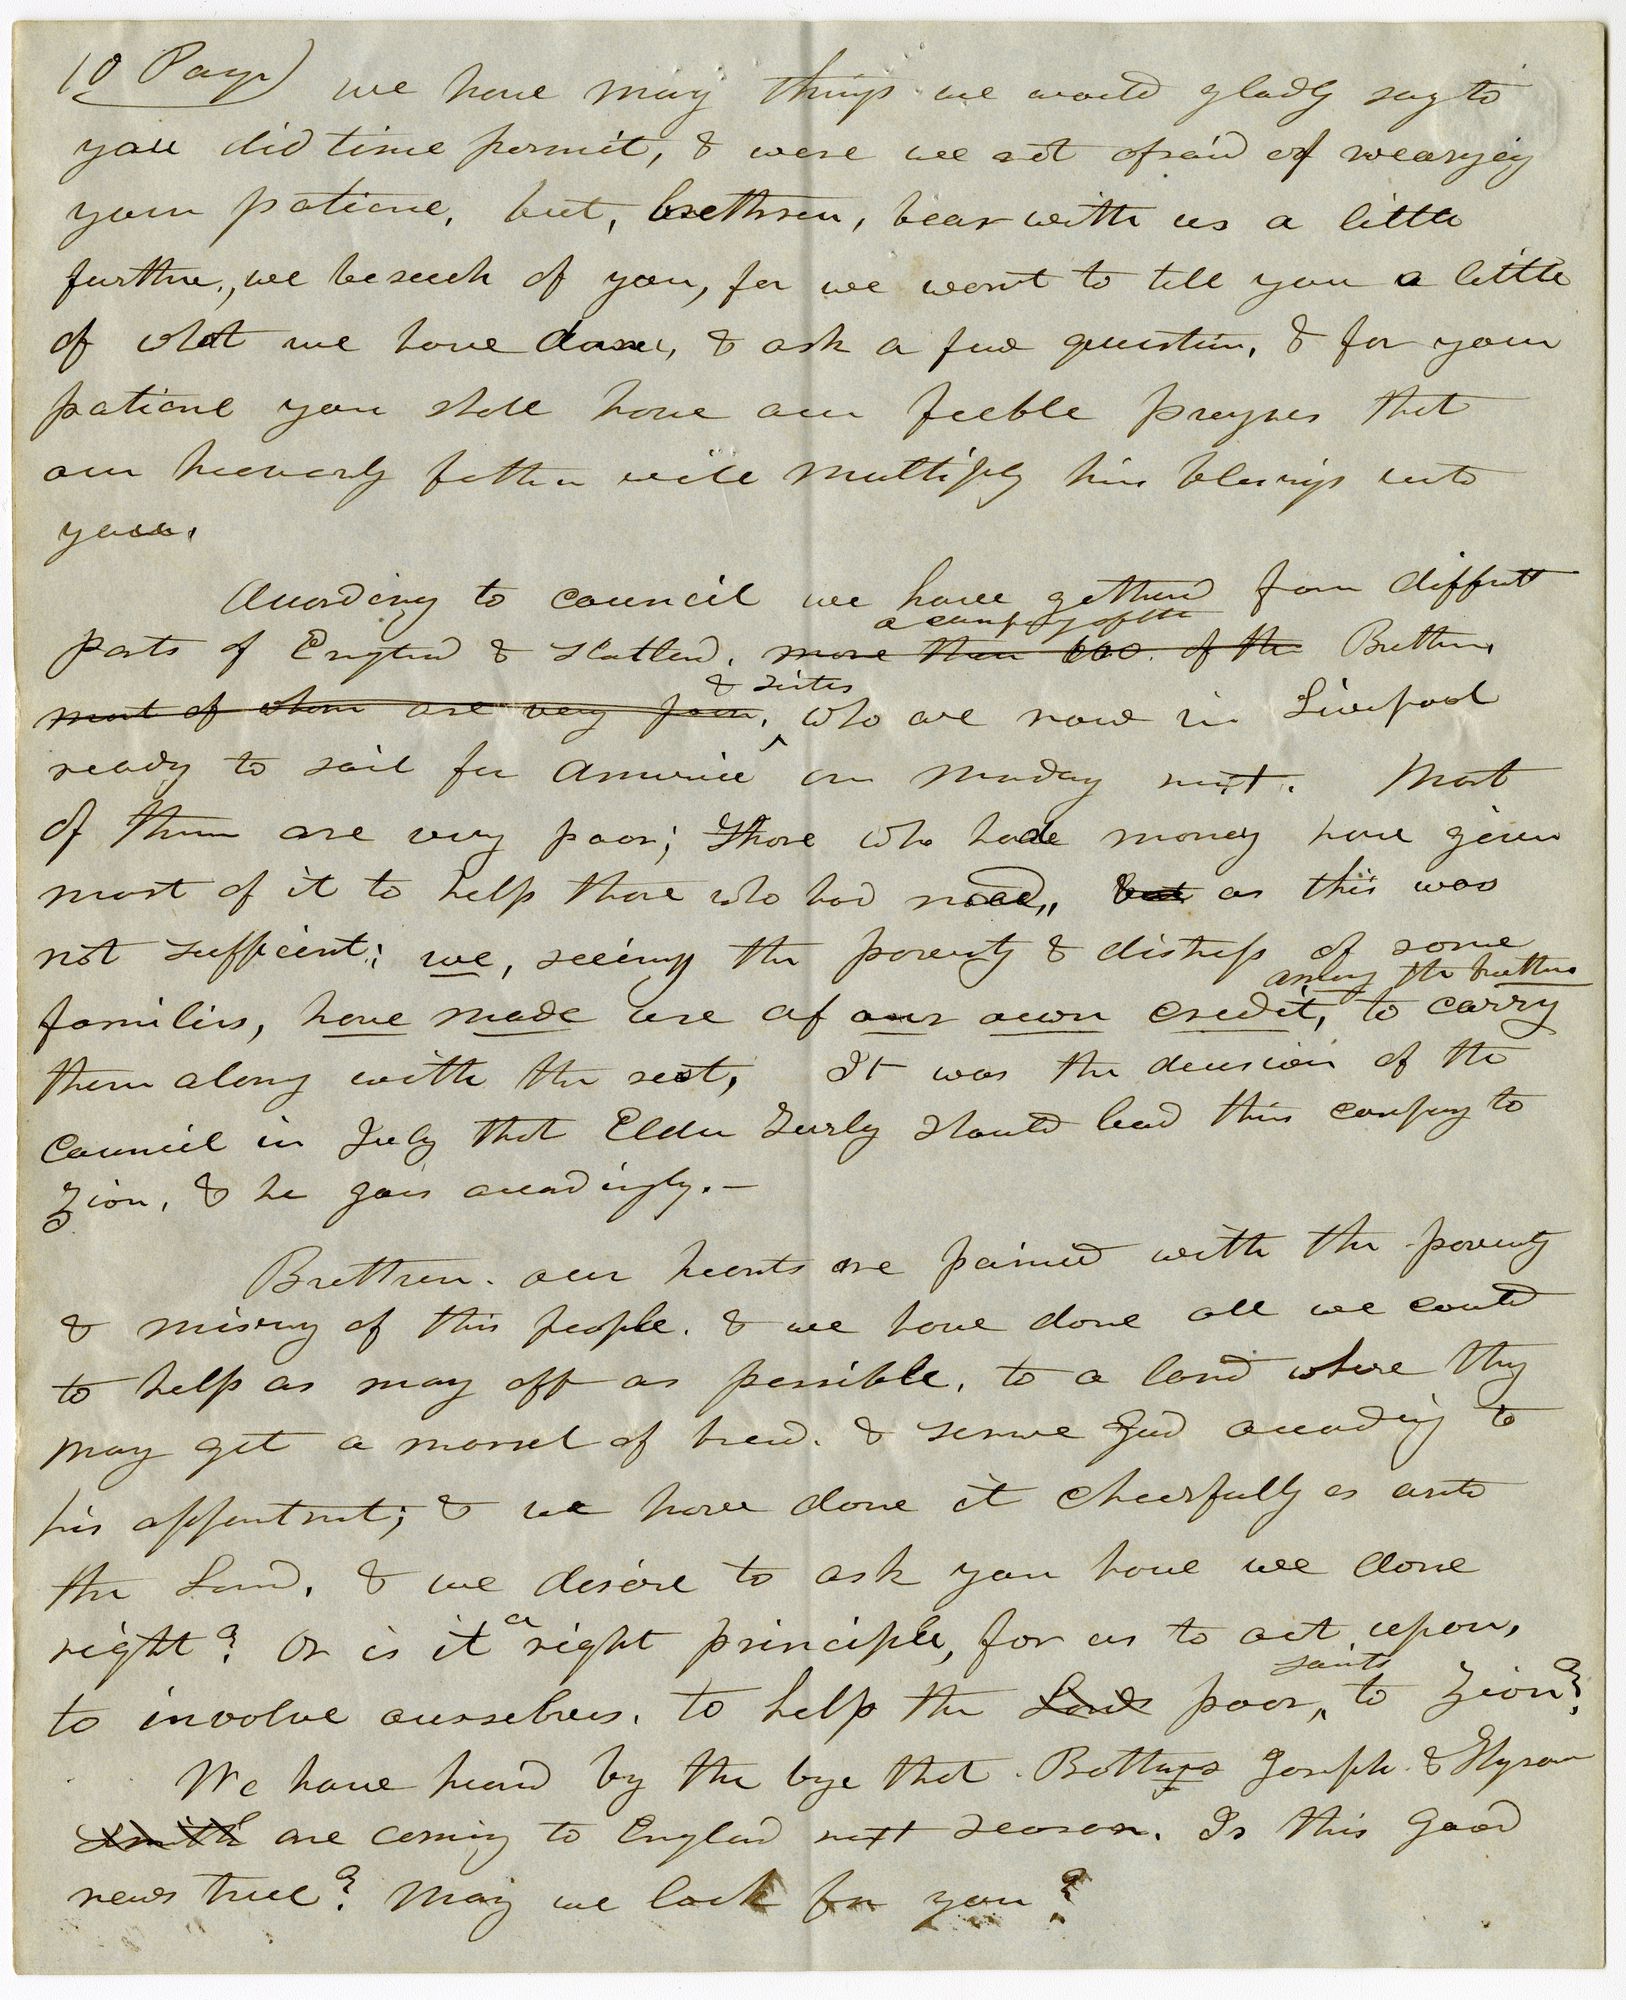 10 Page) we have many things we would gladly say to
you did time permit, & were we not afraid of wearying
your patience, but, brethren, bear with us a little
further, we beseech of you, for we want to tell you a little
of what we have done, & ask a few question, & for your
patience you shall have our feeble prayers that
our heavenly father will multiply his blessings unto
you.
According to council we have gathered from different
a company of the
parts of England & Scotland, more than 600. of the Brethren,
& sisters
most of whom are very poor, who are now in Liverpool
ready to sail for America on Monday next. Most
of them are very poor; Those who had money have given
most of it to help those who had need, but as this was
not sufficient; we, seeing the poverty & distress of some
among the brethren
families, have made use of our own credit, to carry
them along with the rest, It was the decision of the
council in July that Elder Turly should lead this company to
Zion, & he gois accordingly. —
Brethren. our hearts are pained with the poverty
& misery of this people. & we have done all we could
to help as many off as possible, to a land where they
may get a morsel of bread. & serve God according to
his appointment; & we have done it cheerfully as unto
the Lord, & we desire to ask you have we done
right? Or is it a right principle, for us to act upon,
saints
to involve ourselves. to help the poor, to Zion?
We have heard by the bye that Brothers Joseph & Hyrum
Smith are coming to England next season. Is this good
news true? May we look for you?